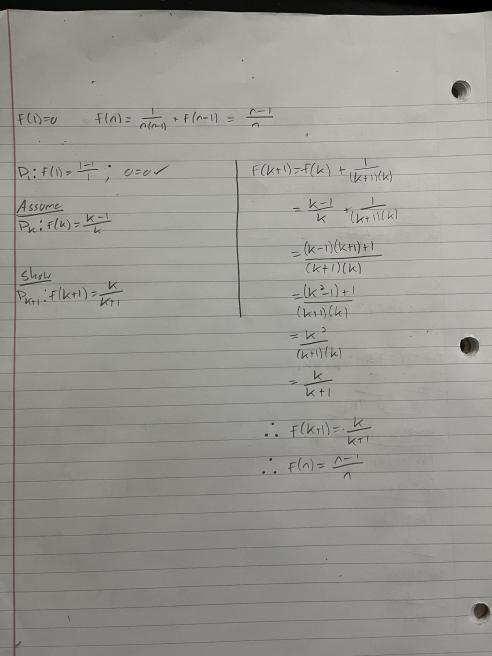 F(1)=0 f(n) = 1/(n(n-1)) + F(n-1) = (n-1)/n
P₁: f(1) = (1-1)/1 ; 0=0 ✓
Assume
Pk: f(k) = (k-1)/k
Show
Pk+1: f(k+1) = k/(k+1)
F(k+1) = f(k) + 1/((k+1)(k))
= (k-1)/k + 1/((k+1)(k))
= ((k-1)(k+1)+1)/((k+1)(k))
= ((k²-1)+1)/((k+1)(k))
= k²/((k+1)(k))
= k/(k+1)
∴ F(k+1) = k/(k+1)
∴ F(n) = (n-1)/n